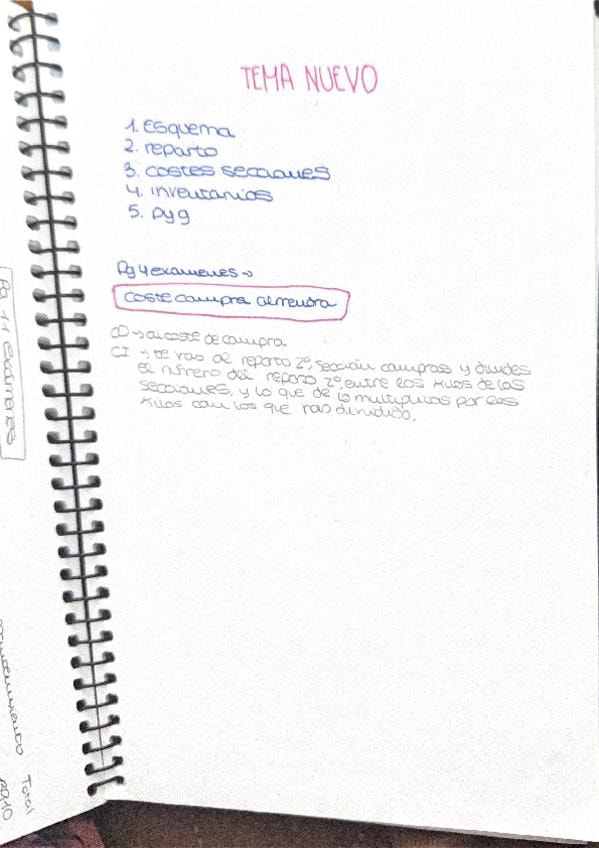 TEMA NUEVO
1. Esquema
2. reparto
3. costes secciones
4. inventarios
5. pyg
Pg 4 examenes →
coste compra almendra
CD → al coste de compra
CI → te vas al reparto 2º, sección compras y divides
el número del reparto 2º, entre los kilos de las
secciones, y lo que de lo multiplicas por los
kilos con los que has dividido.
Pg 11 exámenes
Total